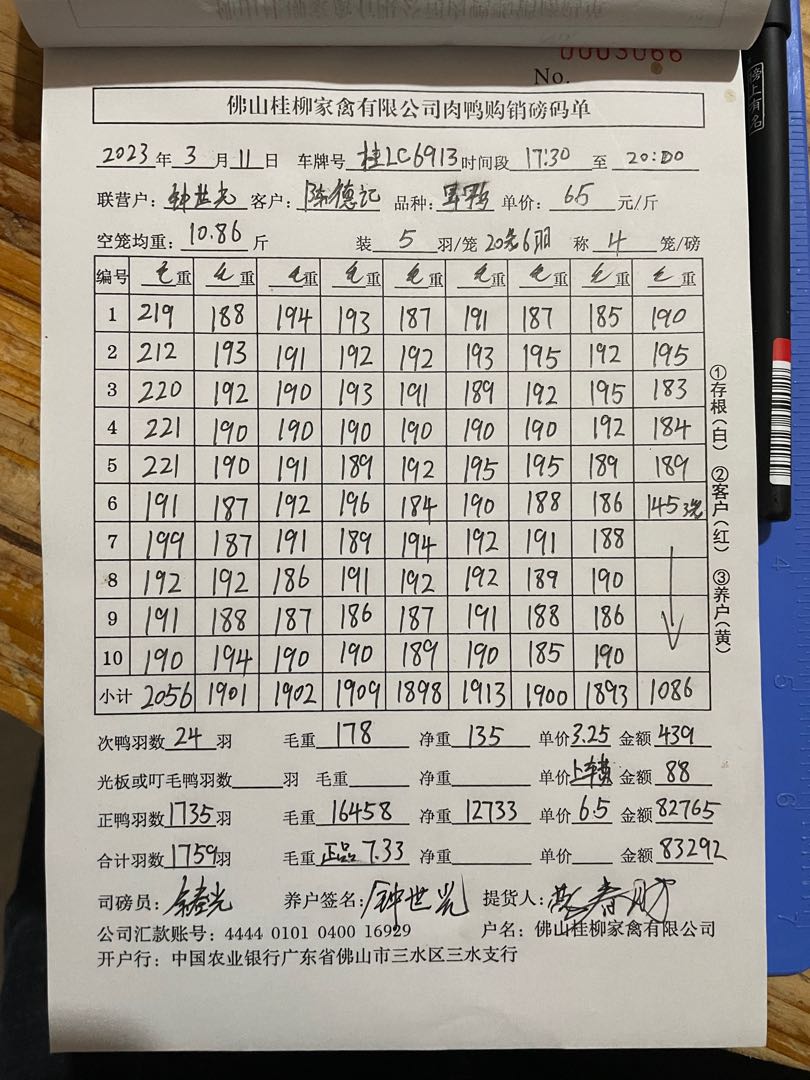 0003066
No.
佛山桂柳家禽有限公司肉鸭购销磅码单
2023 年 3 月 11 日 车牌号 桂LC6913 时间段 17:30 至 20:00
联营户: 钟世光 客户: 陈德记 品种: 单价: 6.5 元/斤
空笼均重: 10.86 斤 装 5 羽/笼 20笼6羽 称 4 笼/磅
编号 毛重 毛重 毛重 毛重 毛重 毛重 毛重 毛重 毛重
1 219 188 194 193 187 191 187 185 190
2 212 193 191 192 192 193 195 192 195
3 220 192 190 193 191 189 192 195 183
4 221 190 190 190 190 190 190 192 184
5 221 190 191 189 192 195 195 189 189
6 191 187 192 196 184 190 188 186 145 3笼
7 199 187 191 189 194 192 191 188
8 192 192 186 191 192 192 189 190
9 191 188 187 186 187 191 188 186
10 190 194 190 190 189 190 185 190
小计 2056 1901 1902 1909 1898 1913 1900 1893 1086
①存根(白) ②客户(红) ③养户(黄)
次鸭羽数 24 羽 毛重 178 净重 135 单价 3.25 金额 439
光板或叮毛鸭羽数 羽 毛重 净重 单价 金额 88
正鸭羽数 1735 羽 毛重 16458 净重 12733 单价 6.5 金额 82765
合计羽数 1759 羽 毛重 正品 7.33 净重 单价 金额 83292
司磅员: 养户签名: 钟世光 提货人:
公司汇款账号: 4444 0101 0400 16929 户名: 佛山桂柳家禽有限公司
开户行: 中国农业银行广东省佛山市三水区三水支行
榜上有名
4
5
6
7